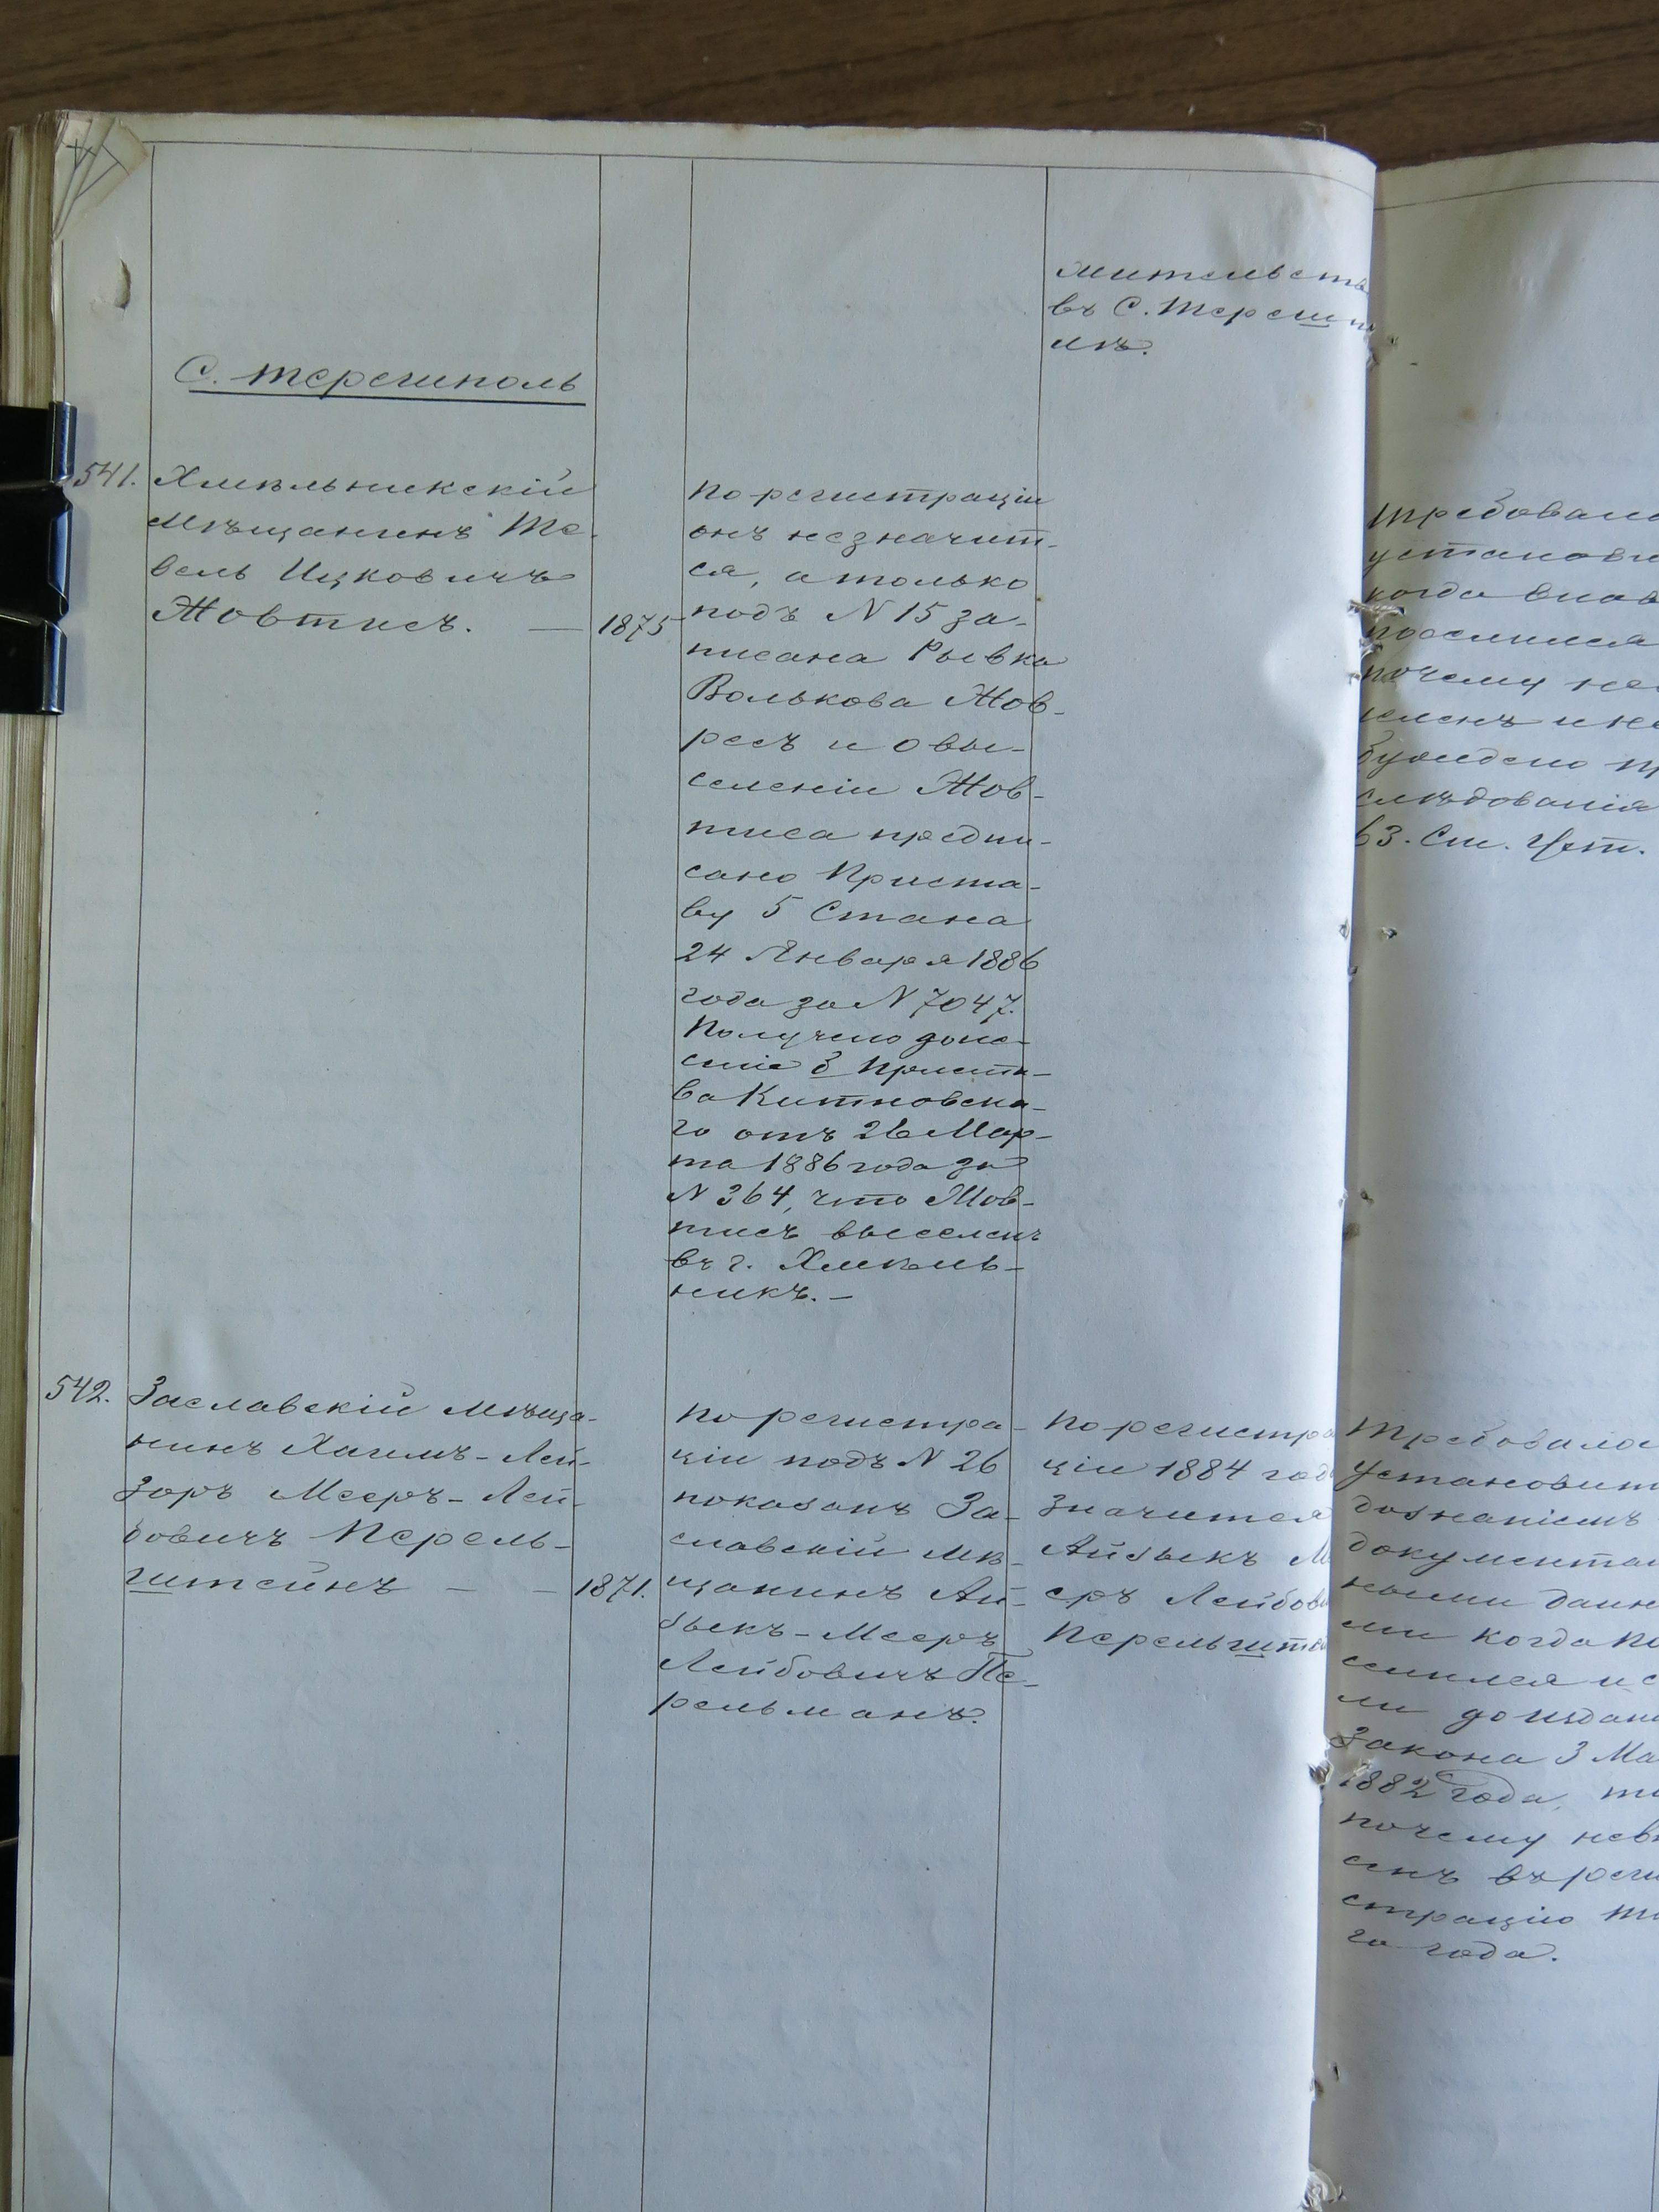 жительств
въ С. Терешп
лѣ.
С. Терешполь
541.
Хмѣльникскій
мѣщанинъ Те-
вель Ицковичъ
Жовтисъ. — 1875
по регистраціи
онъ незначит-
ся, а только
подъ N 15 за-
писана Рывка
Волькова Жов-
ресъ и о вы-
селеніи Жов-
тиса предпи-
сано Приста-
ву 5 Стана
24 Января 1886
года за N 7047.
Получено доне-
сеніе Приста-
ва Китновска-
го отъ 26 Мар-
та 1886 года за
N 364, что Жов-
тисъ выселенъ
въ г. Хмѣль-
никъ. —
Требовало
установи
когда внов
поселился
почему не
селенъ и не
буждено пр
слѣдованія
63. Ст. Уст.
542.
Заславскій мѣща-
нинъ Хаимъ-Лей-
зоръ Мееръ-Лей-
бовичъ Перель-
штейнъ — — 1871.
по регистра-
ціи подъ N 26
показанъ За-
славскій мѣ-
щанинъ Ай-
зыкъ-Мееръ
Лейбовичъ Пе-
рельманъ.
по регистра
ціи 1884 год
значится
Айзыкъ М
еръ Лейбов
Перельште
Требовало
установит
дознаніемъ
документал
ными данн
ми когда по
селился и с
ли до издан
Закона 3 Ма
1882 года, т
почему невн
сенъ въ реги
страцію т
го года.